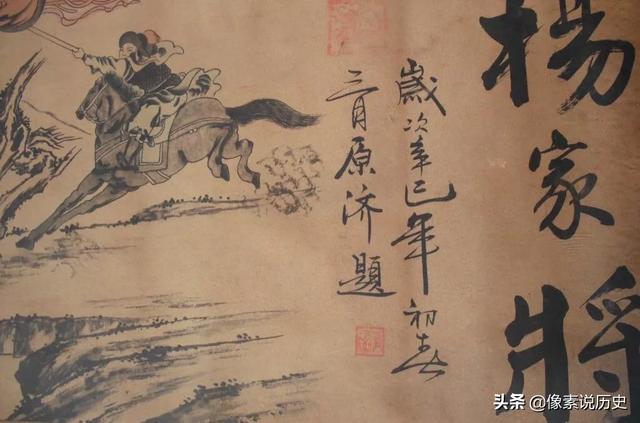 楊家將
歲次辛巳年初春
三月原济題
头条 @像素说历史